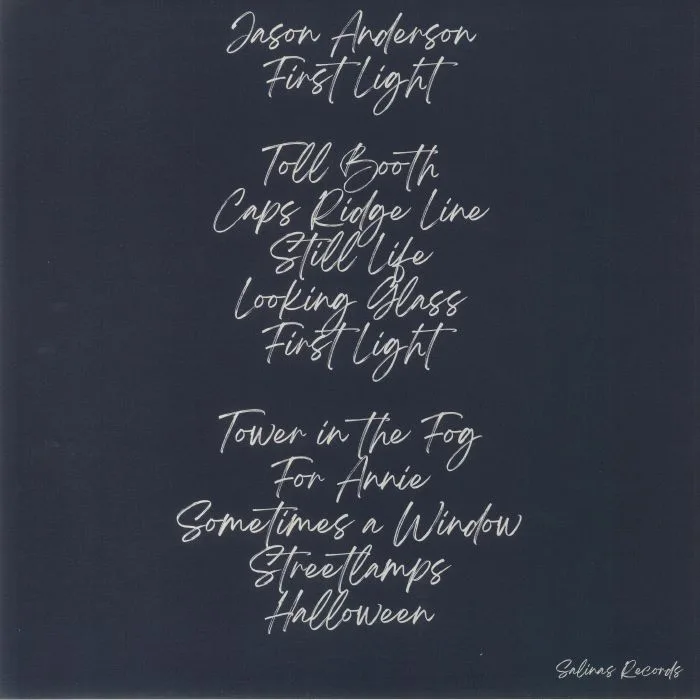 Jason Anderson
First Light
Toll Booth
Caps Ridge Line
Still Life
Looking Glass
First Light
Tower in the Fog
For Annie
Sometimes a Window
Streetlamps
Halloween
Salinas Records